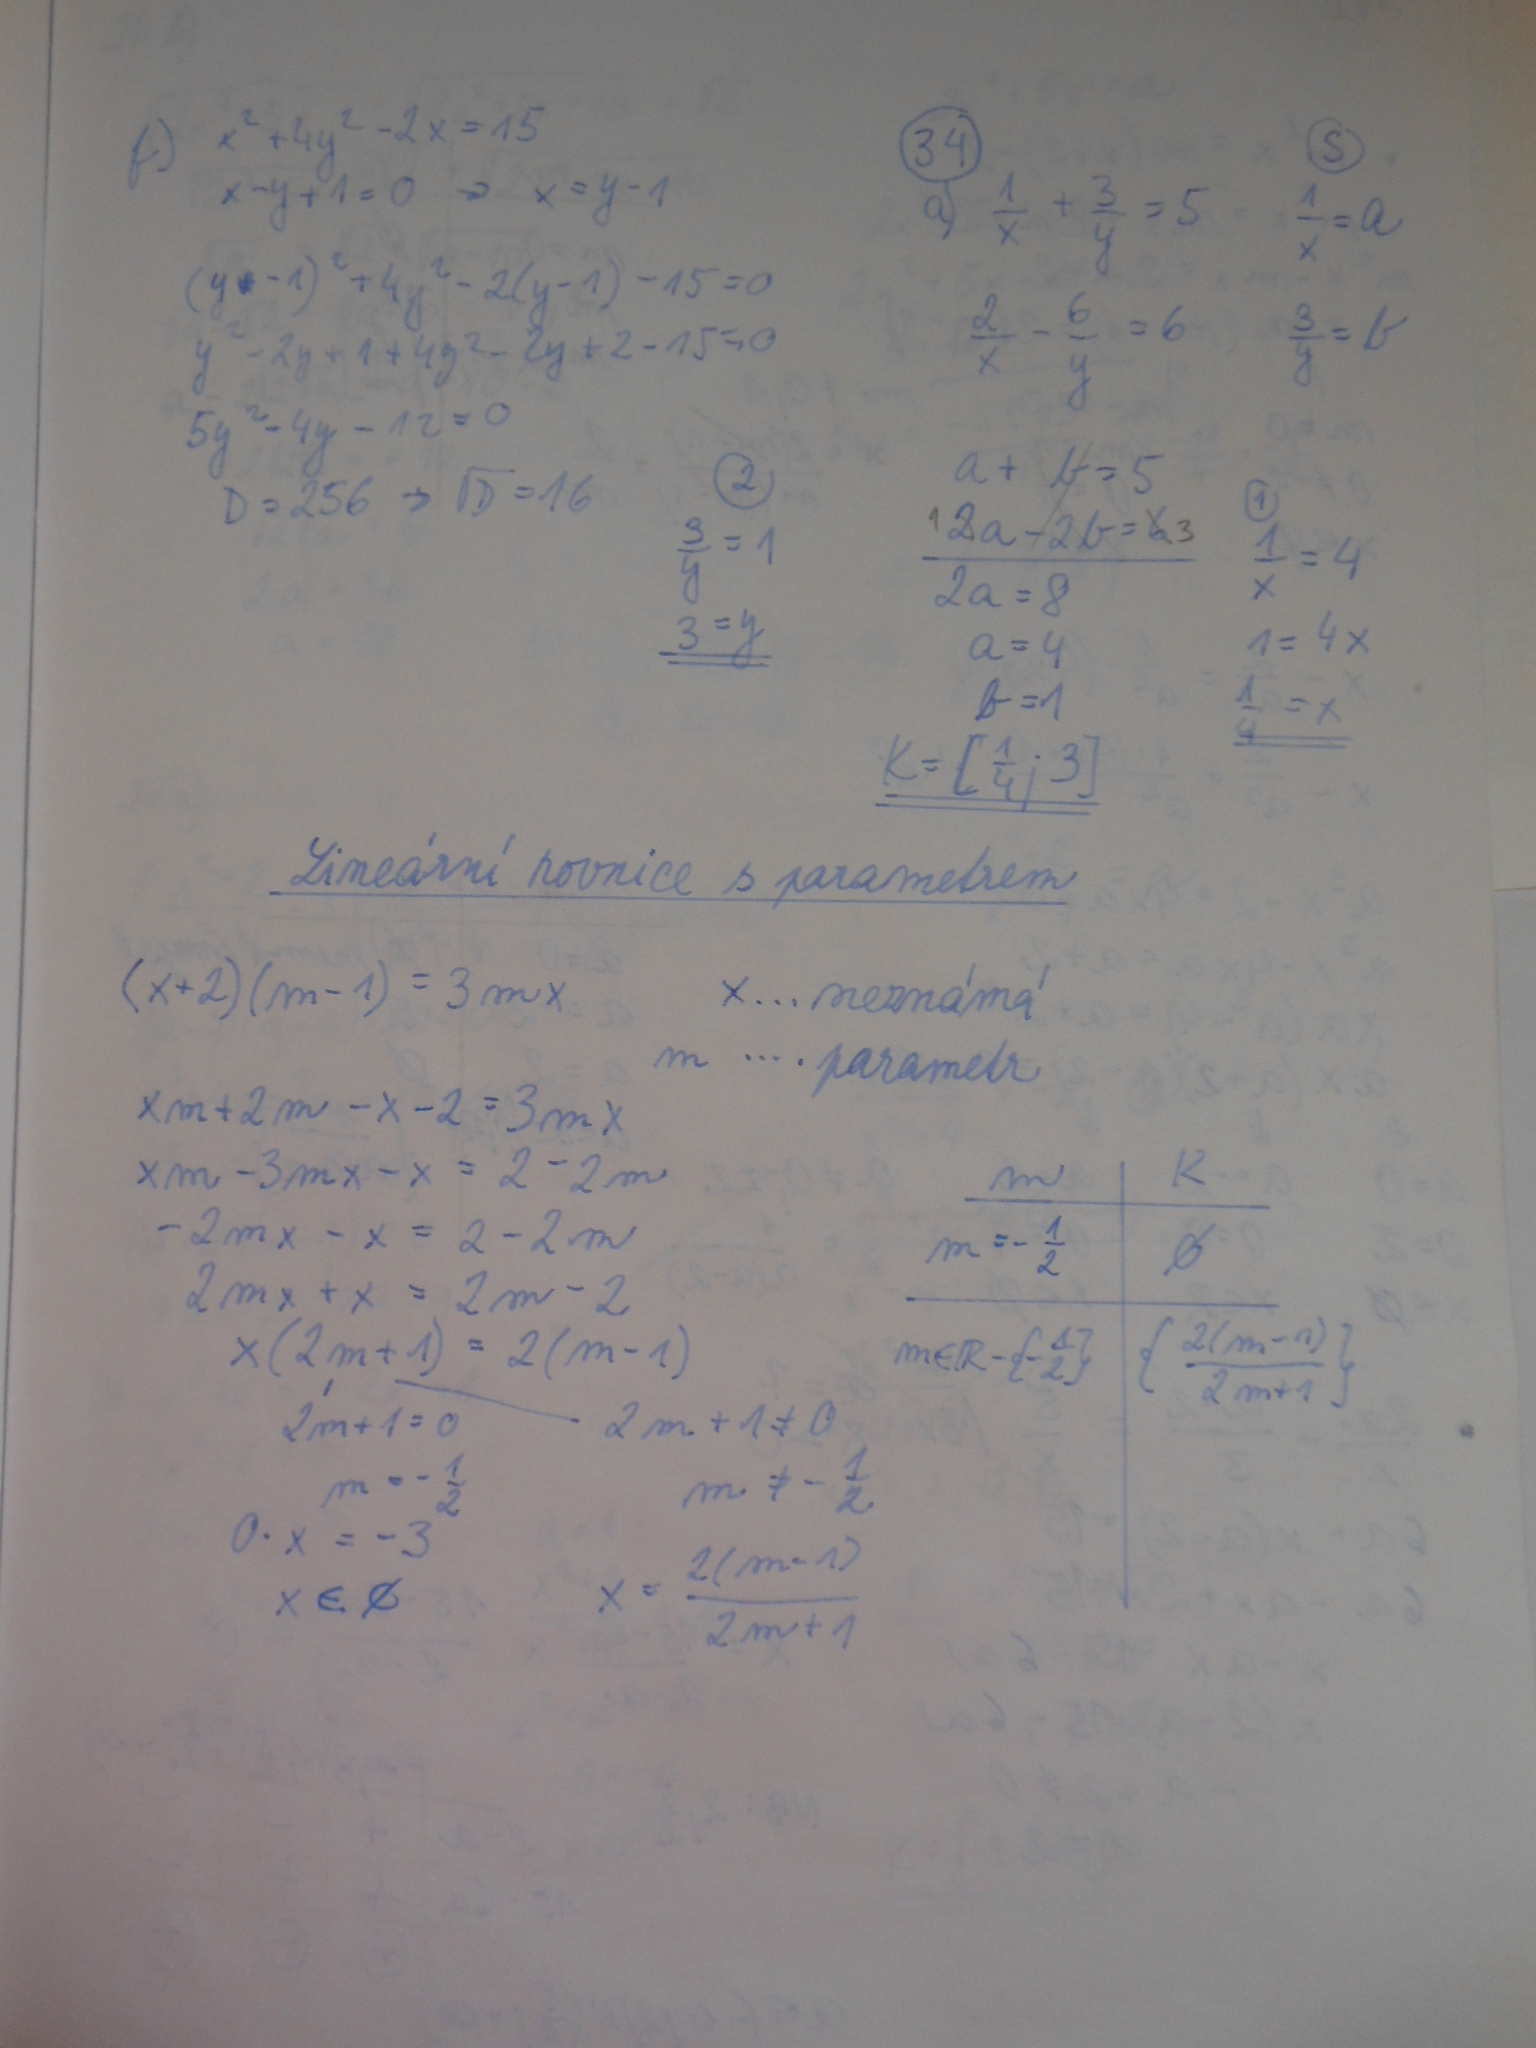 f) x² + 4y² - 2x = 15
x - y + 1 = 0 → x = y - 1
(y - 1)² + 4y² - 2(y - 1) - 15 = 0
y² - 2y + 1 + 4y² - 2y + 2 - 15 = 0
5y² - 4y - 12 = 0
D = 256 → √D = 16
34
S
a) 1/x + 3/y = 5
1/x = a
2/x - 6/y = 6
3/y = b
a + b = 5
1 2a - 2b = 6 3
2a = 8
a = 4
b = 1
K = [1/4; 3]
1
1/x = 4
1 = 4x
1/4 = x
2
3/y = 1
3 = y
Lineární rovnice s parametrem
(x+2)(m-1) = 3mx
x... neznámá
m .... parametr
xm + 2m - x - 2 = 3mx
xm - 3mx - x = 2 - 2m
-2mx - x = 2 - 2m
2mx + x = 2m - 2
x(2m+1) = 2(m-1)
2m+1 = 0
2m + 1 ≠ 0
m = -1/2
m ≠ -1/2
0·x = -3
x ∈ ∅
x = 2(m-1)/2m+1
m K
m = -1/2 ∅
m∈R-{-1/2} {2(m-1)/2m+1}